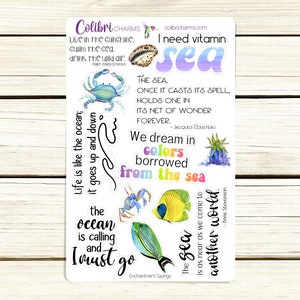 Colibri
CHARMS
colibricharms.com
Live in the sunshine,
swim the sea,
drink the wild air.
Ralph Waldo Emerson
I need vitamin
sea
The sea,
once it casts its spell,
holds one in
its net of wonder
forever.
- Jacques Cousteau
Life is like the ocean,
it goes up and down
We dream in
colors
borrowed
from the sea
the
ocean
is calling
and
I must go
The
sea
is as near as we come to
another world
- Anne Stevenson
Enchantment Sayings